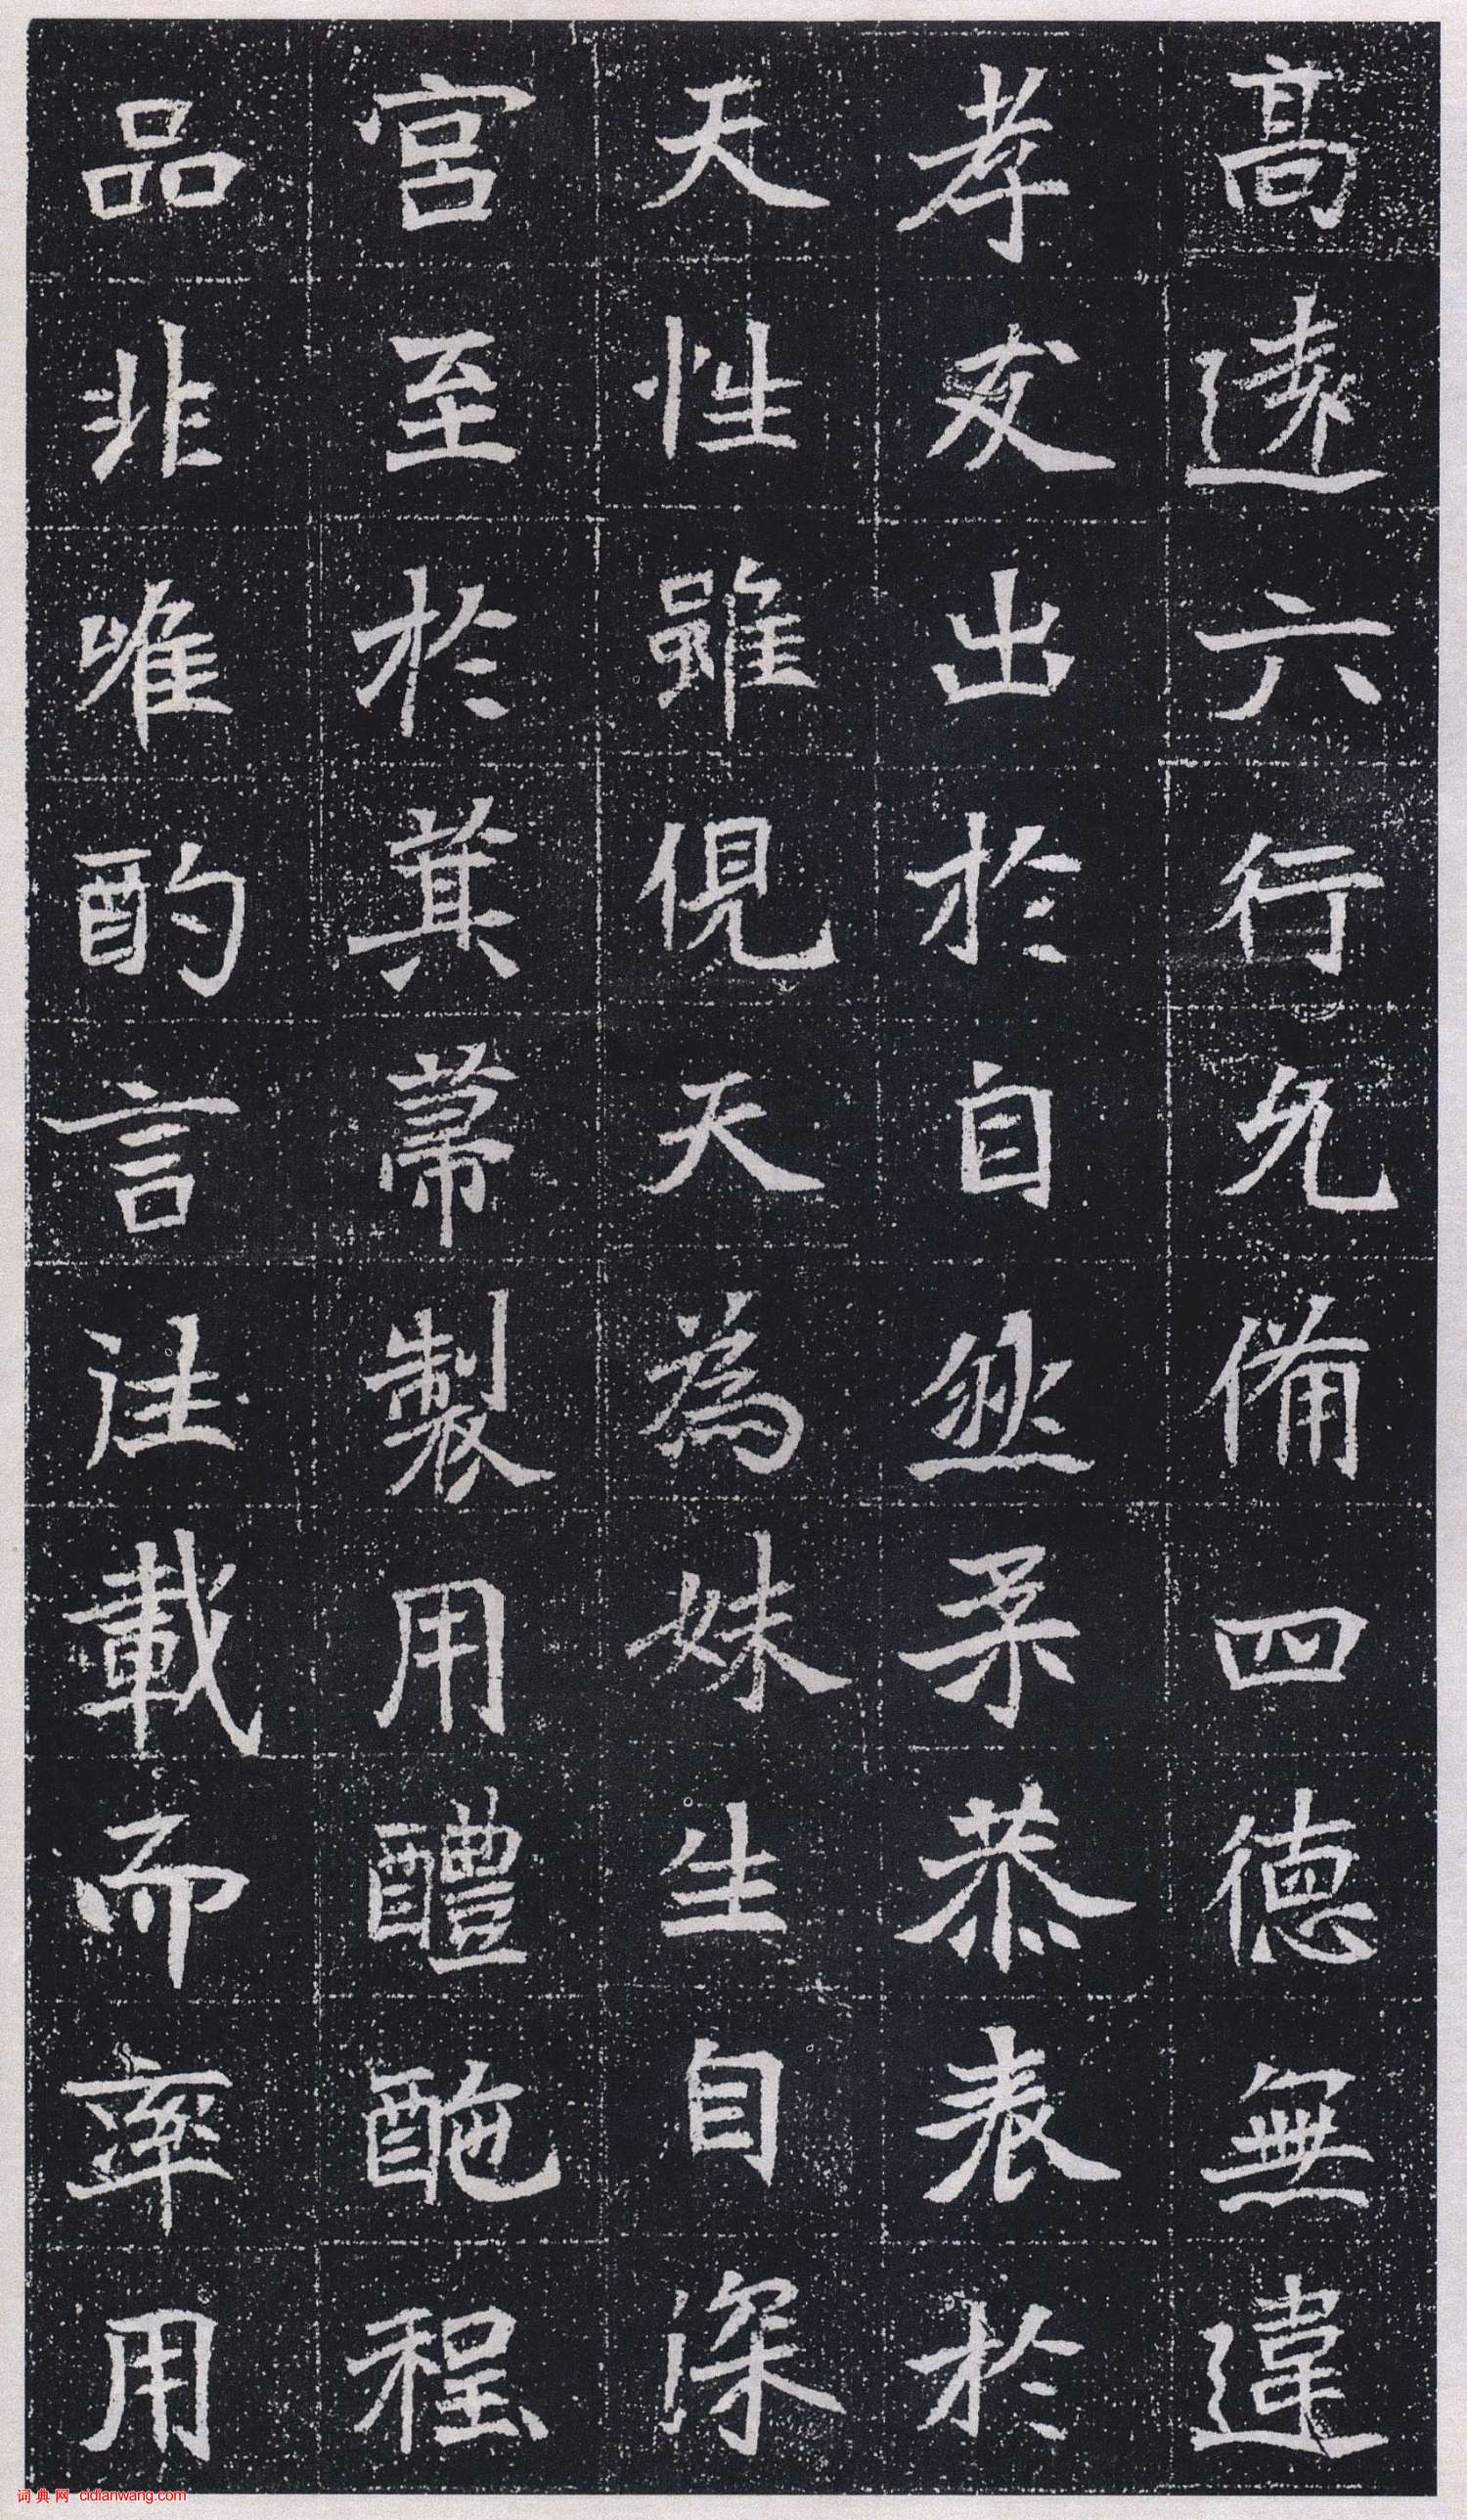 高遠六行允備四德無違
孝友出於自然柔恭表於
天性雖俔天為妹生自深
宮至於箕箒製用醴酏程
品非唯酌言注載而率用
词典网 cidianwang.com